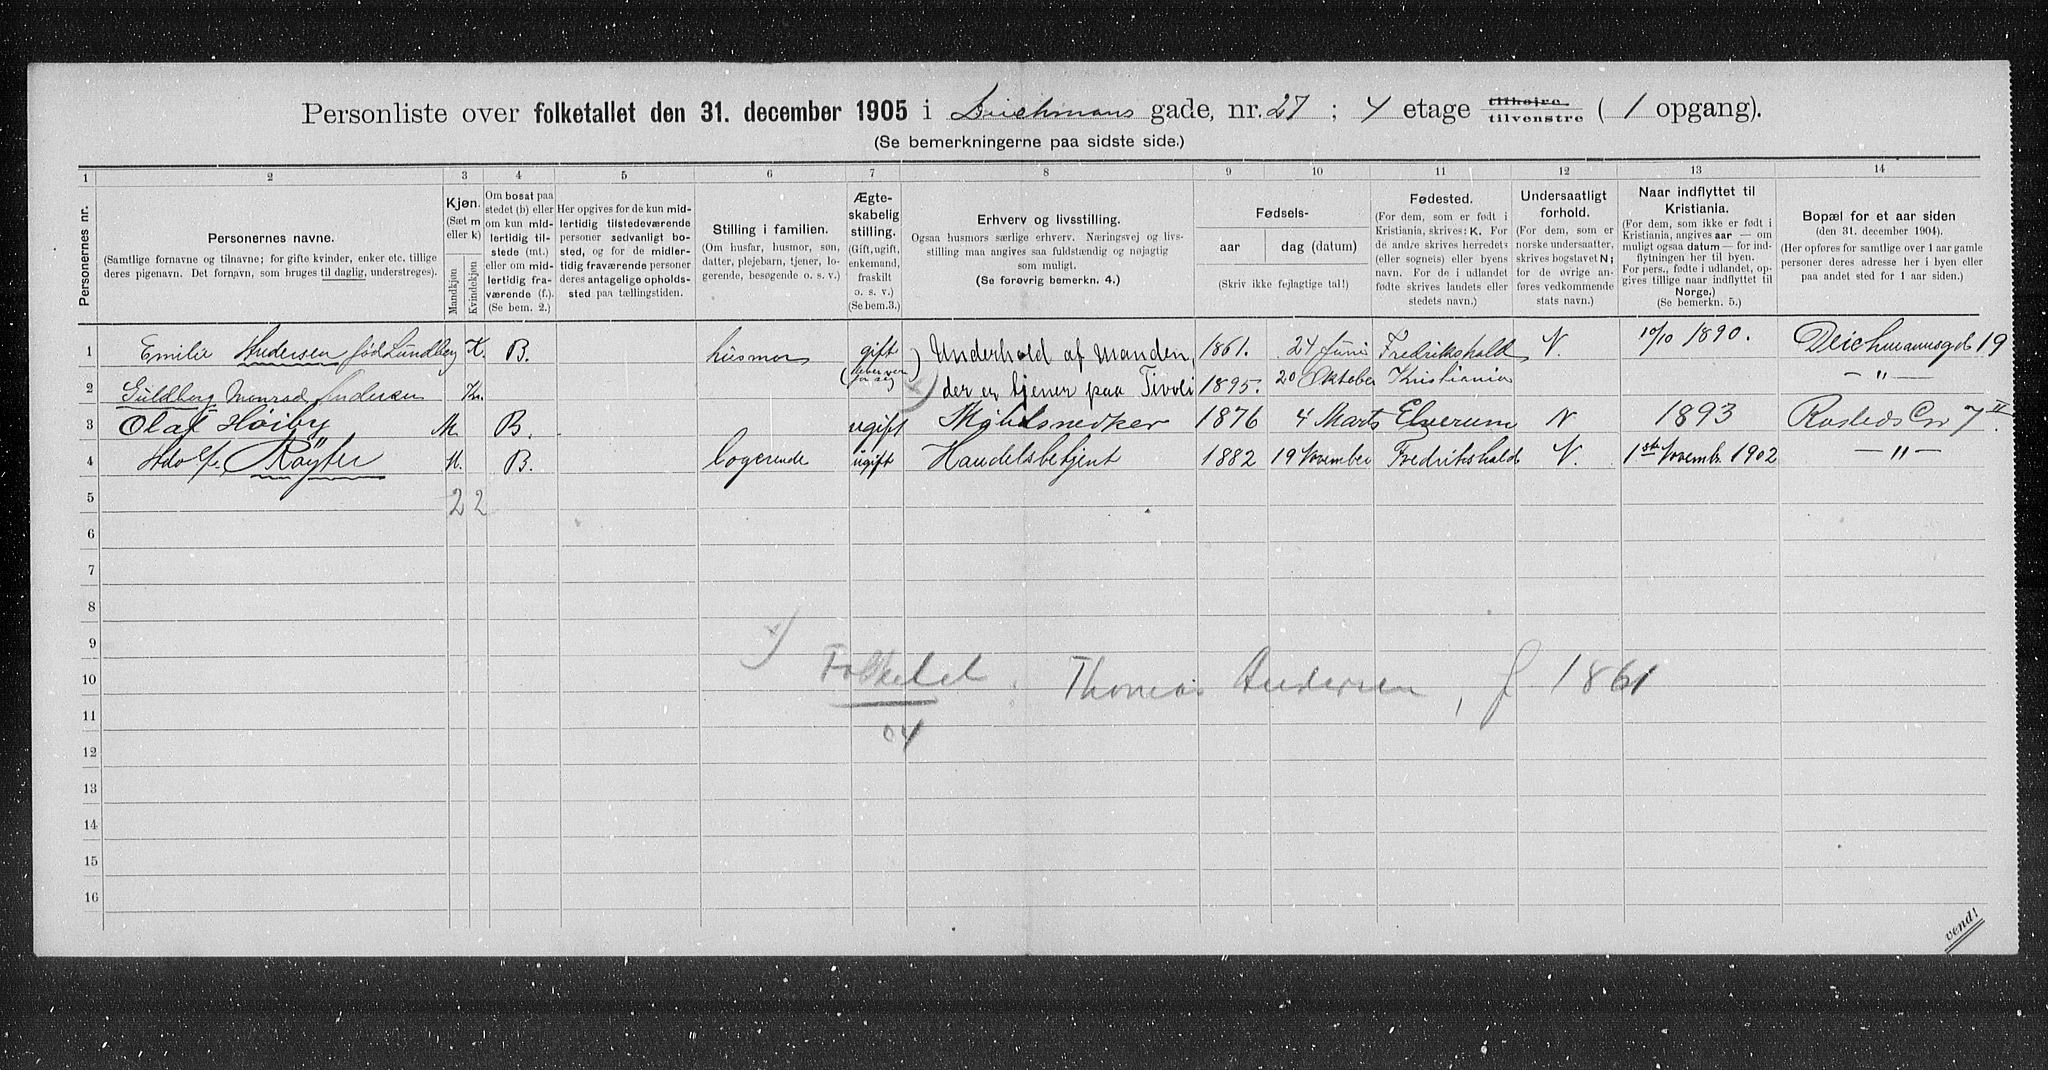 Personliste over folketallet den 31. december 1905 i Deichmans gade, nr. 27 ; 4 etage tilhøjre tilvenstre ( 1 opgang).
(Se bemerkningerne paa sidste side.)
1 2 3 4 5 6 7 8 9 10 11 12 13 14
Personernes nr.
Personernes navne.
(Samtlige fornavne og tilnavne; for gifte kvinder, enker etc. tillige
deres pigenavn. Det fornavn, som bruges til daglig, understreges).
Kjøn.
(Sæt m
eller k)
Mandkjøn
Kvindekjøn
Om bosat paa
stedet (b) eller
om kun mid-
lertidig til-
stede (mt.)
eller om mid-
lertidig fra-
værende (f.).
(Se bem. 2.)
Her opgives for de kun mid-
lertidig tilstedeværende
personer sedvanligt bo-
sted, og for de midler-
tidig fraværende personer
deres antagelige opholds-
sted paa tællingstiden.
Stilling i familien.
(Om husfar, husmor, søn,
datter, plejebarn, tjener, lo-
gerende, besøgende o. s. v.)
Ægte-
skabelig
stilling.
(Gift, ugift,
enkemand,
fraskilt
o. s. v.)
(Se bem.3.)
Erhverv og livsstilling.
Ogsaa husmors særlige erhverv. Næringsvej og livs-
stilling maa angives saa fuldstændig og nøjagtig
som muligt.
(Se forøvrig bemerkn. 4.)
Fødsels-
aar
dag (datum)
(Skriv ikke fejlagtige tal!)
Fødested.
(For dem, som er født i
Kristiania, skrives: K. For
de andre skrives herredets
(eller sognets) eller byens
navn. For de i udlandet
fødte skrives landets eller
stedets navn.)
Undersaatligt
forhold.
(For dem, som er
norske undersaatter,
skrives bogstavet N;
for de øvrige an-
føres vedkommende
stats navn.)
Naar indflyttet til
Kristiania.
(For dem, som ikke er født i
Kristiania, angives aar — om
muligt ogsaa datum — for ind-
flytningen her til byen.
For pers., fødte i udlandet, op-
gives tillige naar indflyttet til
Norge.)
(Se bemerkn. 5.)
Bopæl for et aar siden
(den 31. december 1904).
(Her opføres for samtlige over 1 aar gamle
personer deres adresse her i byen eller
paa andet sted for 1 aar siden.)
1 Emilie Andersen født Lundberg K. B. husmor gift Underhold af Manden, 1861. 24 Juni Fredrikshald N. 10/10 1890. Deichmannsgd 19
(lever ver for sig)
2 Guldborg Monrad Andersen Kv. x) der er tjener paa Tivoli 1895. 20 Oktober Kristiania — " —
3 Olaf Høiby M. B. ugift Møbelsnedker 1876 4 Marts Elverum N 1893 Rosteds Gd 7 II
4 Adolf Röyter M. B. logerende ugift Handelsbetjent 1882 19 November Fredrikshald N. 1ste Novembr. 1902 — " —
5 2 2
6
7
8
9
x)
10 Folketel. Thomas Andersen, f 1861
11
04
12
13
14
15
16
vend!